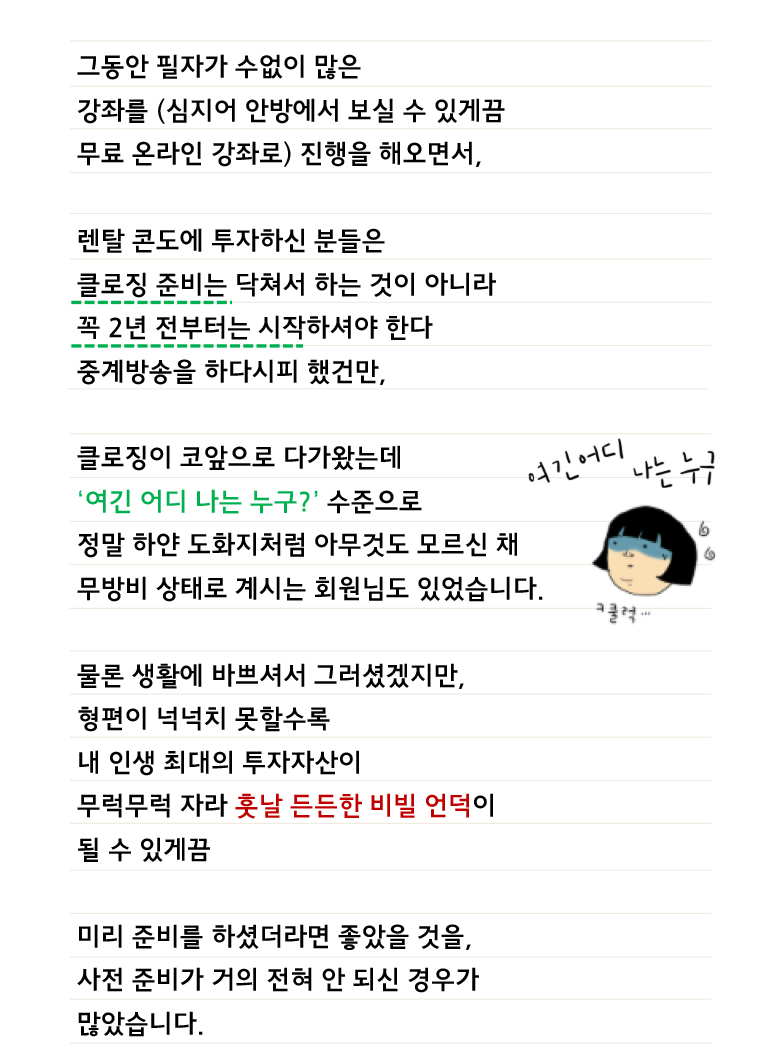 그동안 필자가 수없이 많은
강좌를 (심지어 안방에서 보실 수 있게끔
무료 온라인 강좌로) 진행을 해오면서,
렌탈 콘도에 투자하신 분들은
클로징 준비는 닥쳐서 하는 것이 아니라
꼭 2년 전부터는 시작하셔야 한다
중계방송을 하다시피 했건만,
클로징이 코앞으로 다가왔는데
‘여긴 어디 나는 누구?’ 수준으로
정말 하얀 도화지처럼 아무것도 모르신 채
무방비 상태로 계시는 회원님도 있었습니다.
여긴어디 나는 누구
ㅋ쿨럭...
물론 생활에 바쁘셔서 그러셨겠지만,
형편이 넉넉치 못할수록
내 인생 최대의 투자자산이
무럭무럭 자라 훗날 든든한 비빌 언덕이
될 수 있게끔
미리 준비를 하셨더라면 좋았을 것을,
사전 준비가 거의 전혀 안 되신 경우가
많았습니다.